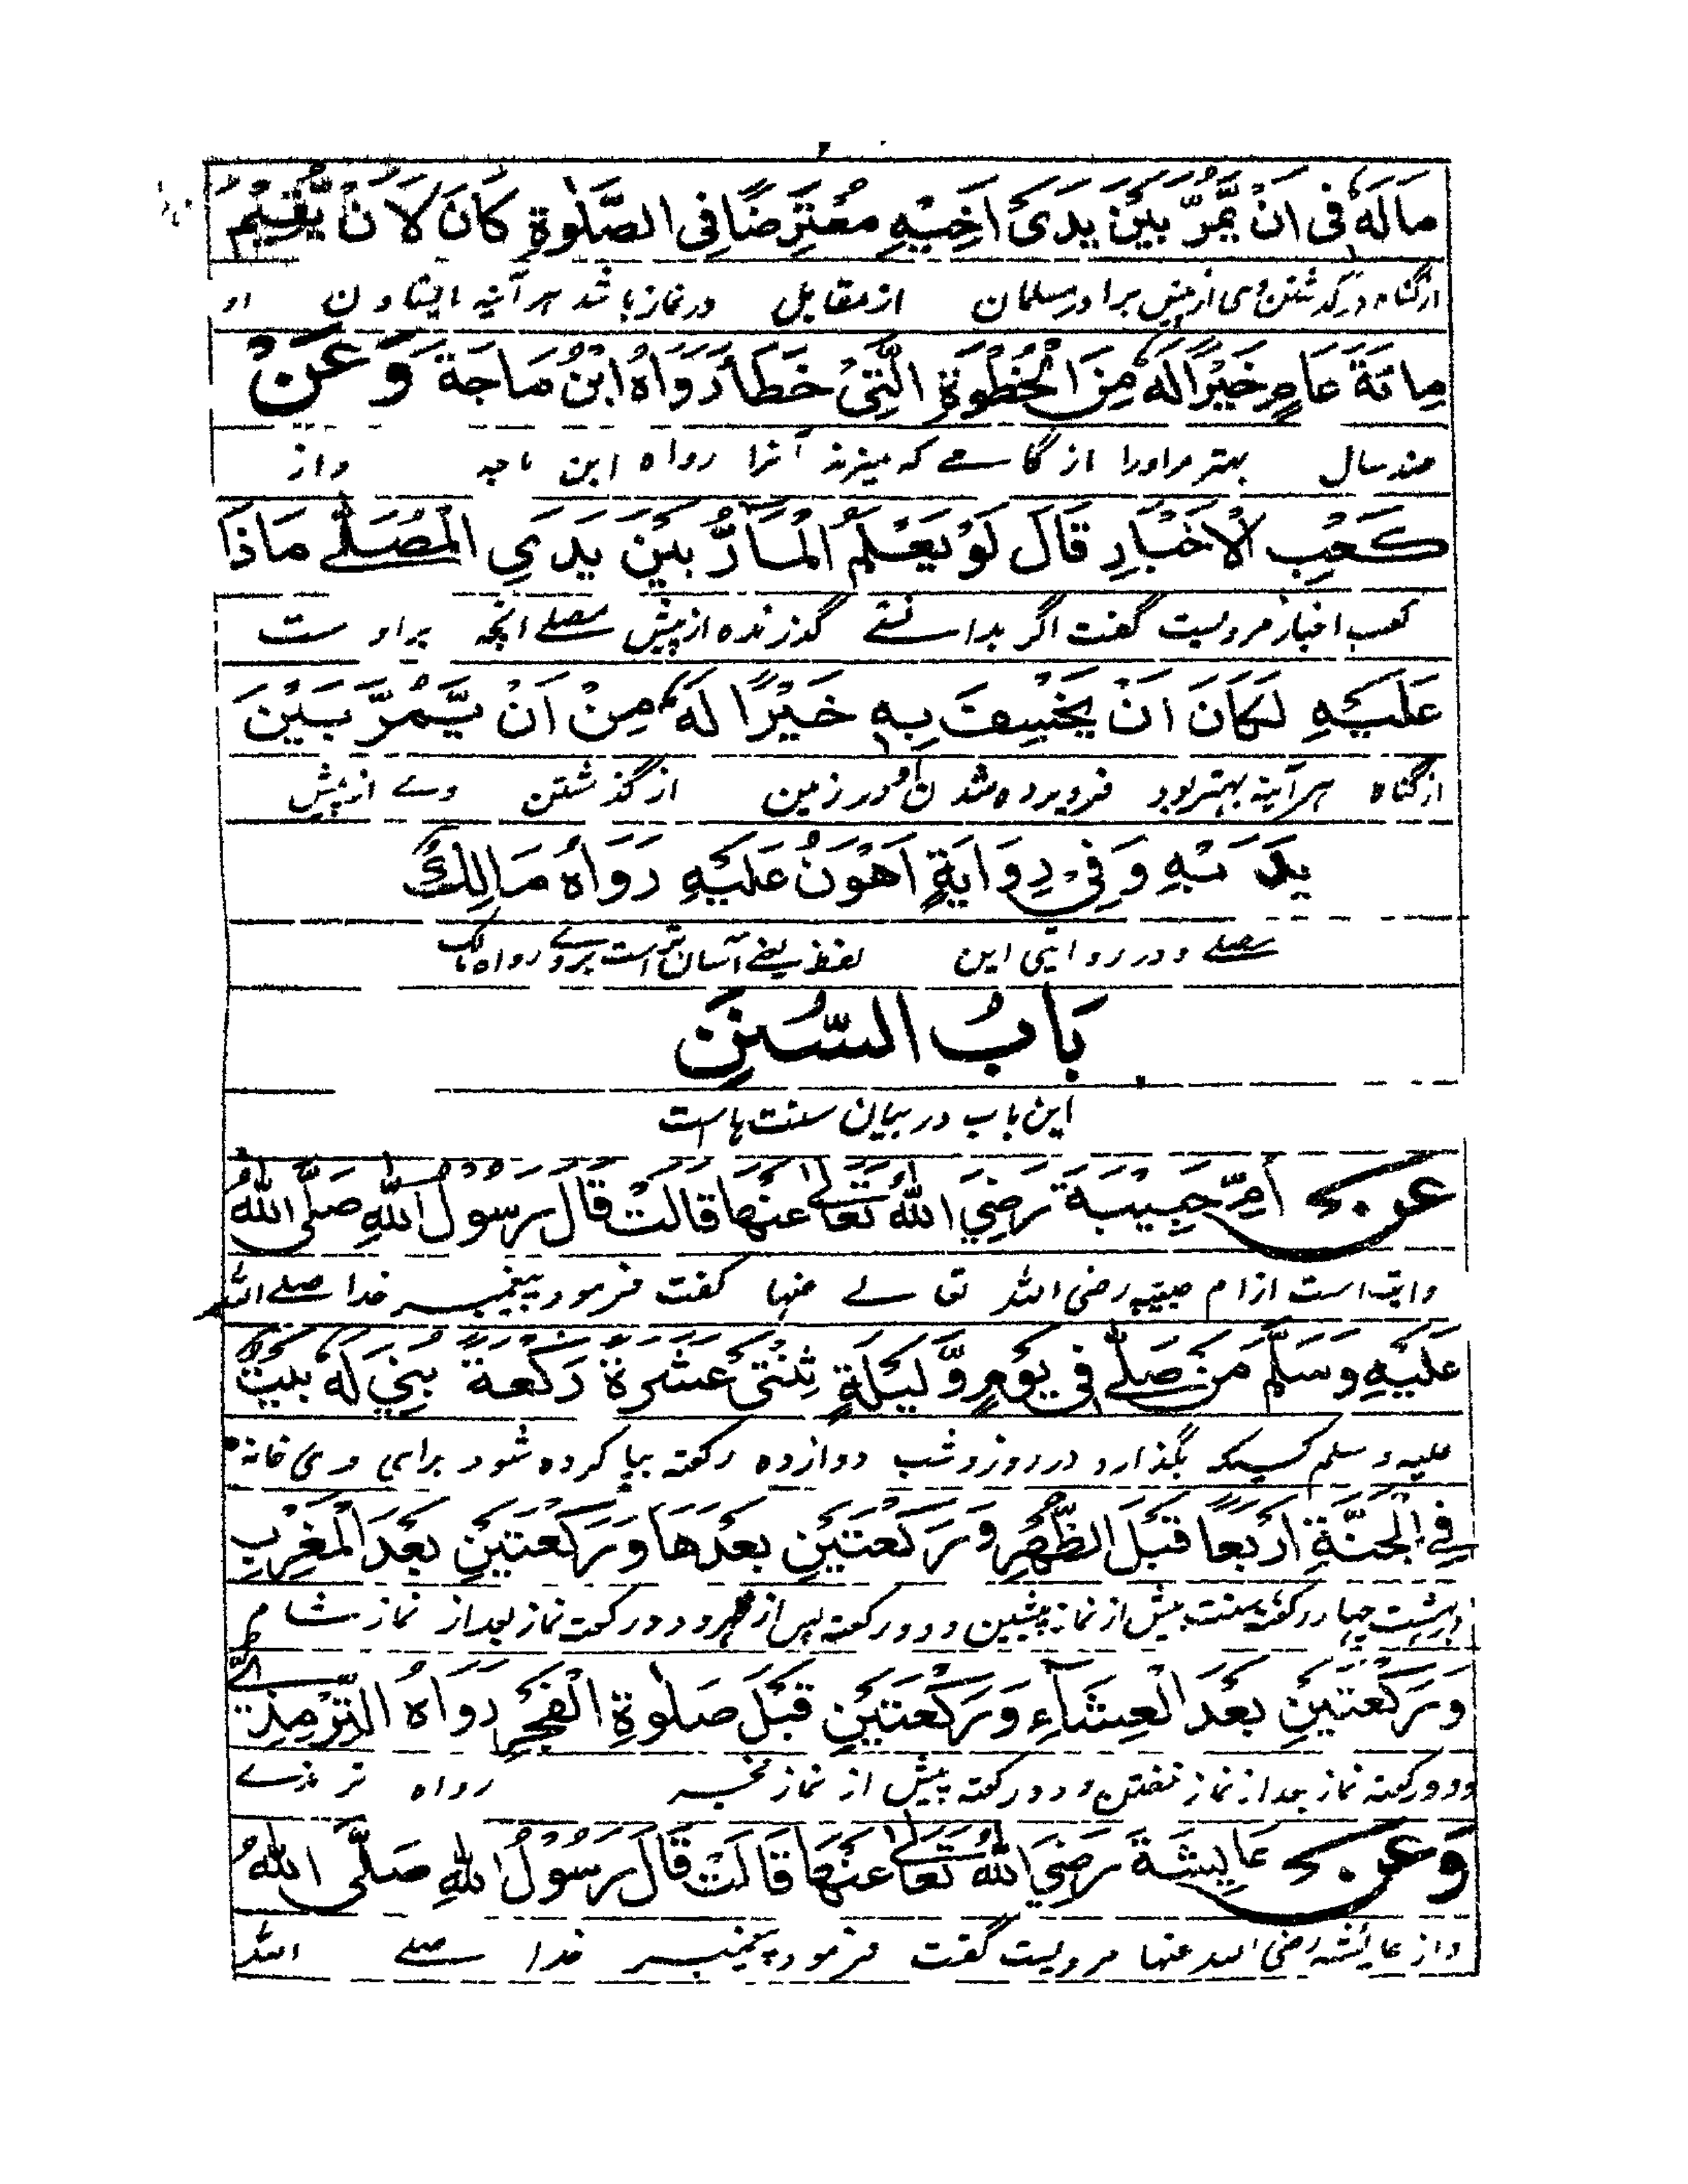 مَا لَهٗ فِی اَنْ یَّمُرَّ بَیْنَ یَدَیْ اَخِیْهِ مُعْتَرِضًا فِی الصَّلٰوةِ كَانَ لَاَنْ یُّقِیْمَ
از گناه در گذشتن وی از پیش برادر مسلمان از مقابل در نماز باشد هر آینه ایستادن او
مِائَةَ عَامٍ خَیْرًا لَهٗ مِنَ الْخُطْوَةِ الَّتِیْ خَطَاْ رَوَاهُ ابْنُ مَاجَةَ وَعَنْ
صد سال بهتر مر او را از گامے که میزند آنرا رواه ابن ماجه و از
كَعْبِ الْاَخْبَارِ قَالَ لَوْ یَعْلَمُ الْمَارُّ بَیْنَ یَدَیِ الْمُصَلّٰے مَاذَا
کعب اخبار مرویست گفت اگر بدانستے گذرنده از پیش مصلے انچه بر اوست
عَلَیْهِ لَكَانَ اَنْ یُخْسَفَ بِهٖ خَیْرًا لَهٗ مِنْ اَنْ یَّمُرَّ بَیْنَ
از گناه هر آینه بهتر بود فرو برده شدن او در زمین از گذشتن وے از پیش
یَدَیْهِ وَفِیْ رِوَایَةٍ اَهْوَنُ عَلَیْهِ رَوَاهُ مَالِكٌ
مصلے و در روایتی این لفظ یعنے آسان تر است بروے رواه مالک
بَابُ السُّنَنِ
این باب در بیان سنت ها است
عَنْ اُمِّ حَبِیْبَةَ رَضِیَ اللّٰهُ تَعَالٰے عَنْهَا قَالَتْ قَالَ رَسُوْلُ اللّٰهِ صَلَّی اللّٰهُ
روایت است از ام حبیبه رضی الله تعالے عنها گفت فرمود پیغمبر خدا صلے الله
عَلَیْهِ وَسَلَّمَ مَنْ صَلّٰے فِیْ یَوْمٍ وَّلَیْلَةٍ ثِنْتَیْ عَشَرَةَ رَكْعَةً بُنِیَ لَهٗ بَیْتٌ
علیه و سلم کسیکه بگذارد در روز و شب دوازده رکعته بپا کرده شود برای وی خانه
فِی الْجَنَّةِ اَرْبَعًا قَبْلَ الظُّهْرِ وَرَكْعَتَیْنِ بَعْدَهَا وَرَكْعَتَیْنِ بَعْدَ الْمَغْرِبِ
در بهشت چهار رکعته سنت پیش از نماز پیشین و دو رکعته پس از ظهر و دو رکعت نماز بعد از نماز شام
وَرَكْعَتَیْنِ بَعْدَ الْعِشَآءِ وَرَكْعَتَیْنِ قَبْلَ صَلٰوةِ الْفَجْرِ رَوَاهُ التِّرْمِذِیُّ
و دو رکعته نماز بعد از نماز خفتن و دو رکعته پیش از نماز فجر رواه ترمذے
وَعَنْ عَایِشَةَ رَضِیَ اللّٰهُ تَعَالٰے عَنْهَا قَالَتْ قَالَ رَسُوْلُ اللّٰهِ صَلَّی اللّٰهُ
و از عائشه رضی الله عنها مرویست گفت فرمود پیغمبر خدا صلے الله